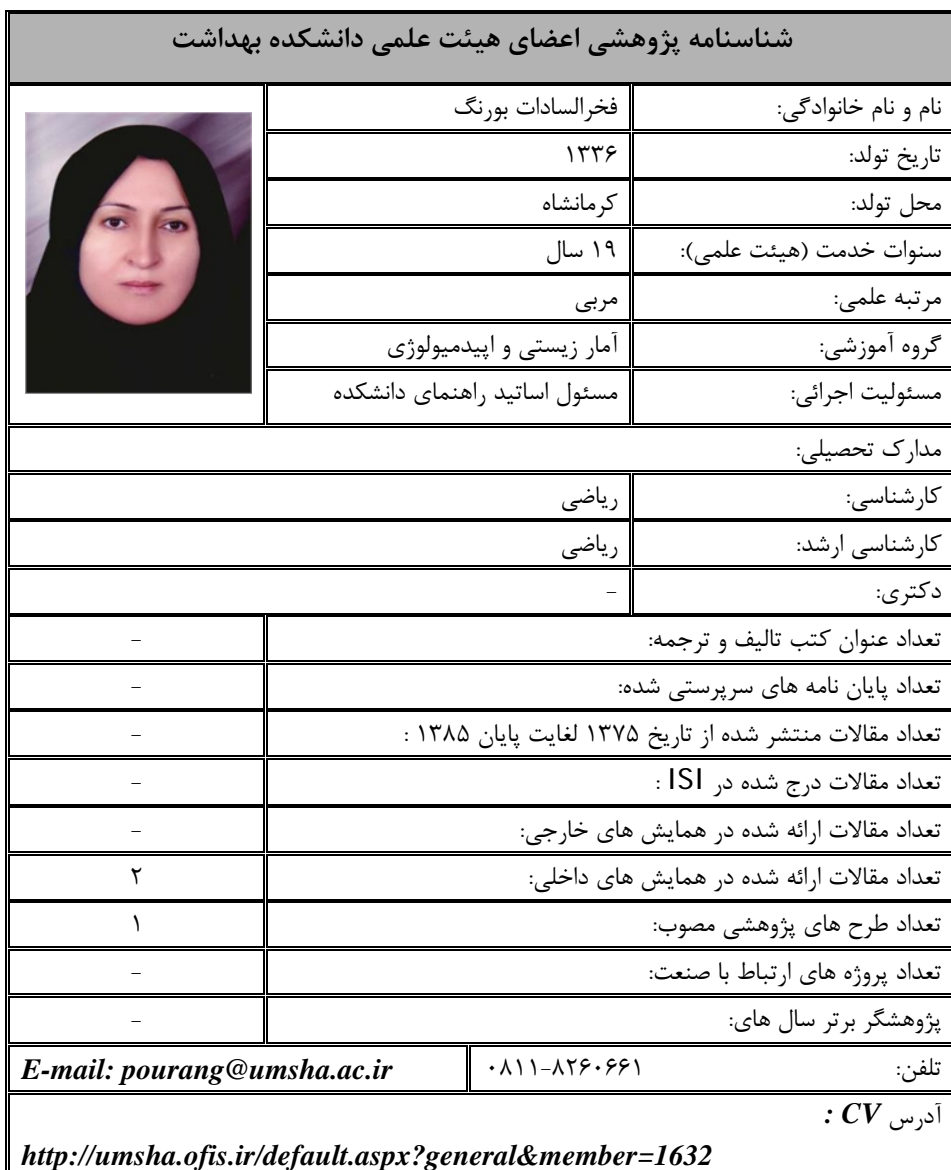 شناسنامه پژوهشی اعضای هیئت علمی دانشکده بهداشت
نام و نام خانوادگی: فخرالسادات بورنگ
تاریخ تولد: ۱۳۳۶
محل تولد: کرمانشاه
سنوات خدمت (هیئت علمی): ۱۹ سال
مرتبه علمی: مربی
گروه آموزشی: آمار زیستی و اپیدمیولوژی
مسئولیت اجرائی: مسئول اساتید راهنمای دانشکده
مدارک تحصیلی:
کارشناسی: ریاضی
کارشناسی ارشد: ریاضی
دکتری: -
تعداد عنوان کتب تالیف و ترجمه: -
تعداد پایان نامه های سرپرستی شده: -
تعداد مقالات منتشر شده از تاریخ ۱۳۷۵ لغایت پایان ۱۳۸۵ : -
تعداد مقالات درج شده در ISI : -
تعداد مقالات ارائه شده در همایش های خارجی: -
تعداد مقالات ارائه شده در همایش های داخلی: ۲
تعداد طرح های پژوهشی مصوب: ۱
تعداد پروژه های ارتباط با صنعت: -
پژوهشگر برتر سال های: -
تلفن: ۰۸۱۱-۸۲۶۰۶۶۱ E-mail: pourang@umsha.ac.ir
آدرس CV :
http://umsha.ofis.ir/default.aspx?general&member=1632